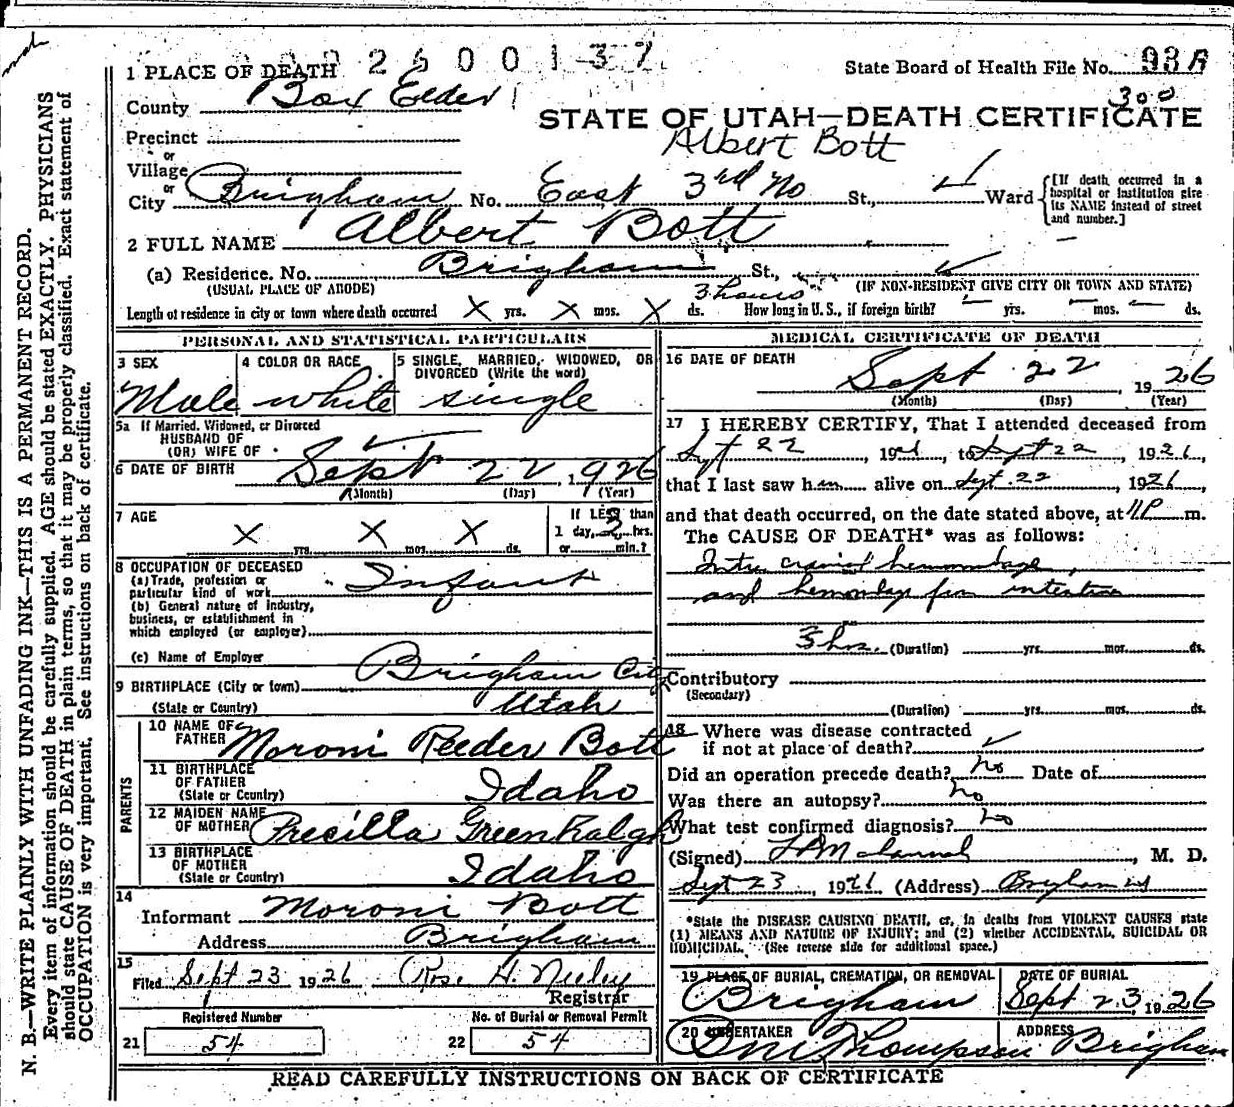 2600137
1 PLACE OF DEATH
State Board of Health File No. 93A
300
County Box Elder
STATE OF UTAH—DEATH CERTIFICATE
Albert Bott
Precinct
or
Village
or
City Brigham No. East 3rd No St., Ward
[If death occurred in a hospital or institution give its NAME instead of street and number.]
2 FULL NAME Albert Bott
(a) Residence. No. Brigham St.,
(USUAL PLACE OF ABODE) (IF NON-RESIDENT GIVE CITY OR TOWN AND STATE)
3 hours
Length of residence in city or town where death occurred X yrs. X mos. X ds. How long in U. S., if foreign birth? — yrs. — mos. — ds.
PERSONAL AND STATISTICAL PARTICULARS
3 SEX
Male
4 COLOR OR RACE
white
5 SINGLE, MARRIED, WIDOWED, OR DIVORCED (Write the word)
single
5a If Married, Widowed, or Divorced
HUSBAND OF
(OR) WIFE OF
6 DATE OF BIRTH Sept 22, 1926
(Month) (Day) (Year)
7 AGE
X yrs. X mos. X ds.
If LESS than
1 day, 3 hrs.
or min.?
8 OCCUPATION OF DECEASED
(a) Trade, profession or
particular kind of work Infant
(b) General nature of industry,
business, or establishment in
which employed (or employer)
(c) Name of Employer
9 BIRTHPLACE (City or town) Brigham City
(State or Country) Utah
PARENTS
10 NAME OF
FATHER Moroni Reeder Bott
11 BIRTHPLACE
OF FATHER
(State or Country) Idaho
12 MAIDEN NAME
OF MOTHER Precilla Green Halgh
13 BIRTHPLACE
OF MOTHER
(State or Country) Idaho
14
Informant Moroni Bott
Address Brigham
15
Filed Sept 23 1926 Ros. H. Neeley
Registrar
Registered Number
21 54
No. of Burial or Removal Permit
22 54
MEDICAL CERTIFICATE OF DEATH
16 DATE OF DEATH
Sept 22 1926
(Month) (Day) (Year)
17 I HEREBY CERTIFY, That I attended deceased from
Sept 22, 19, to Sept 22, 1926,
that I last saw him alive on Sept. 22, 1926,
and that death occurred, on the date stated above, at 11 P m.
The CAUSE OF DEATH* was as follows:
Intra cranial hemorrhage,
and hemorrhage from intestine
3 hrs. (Duration) yrs. mos. ds.
Contributory
(Secondary)
(Duration) yrs. mos. ds.
18 Where was disease contracted
if not at place of death?
Did an operation precede death? no Date of
Was there an autopsy? no
What test confirmed diagnosis? no
(Signed) M. D.
Sept 23, 1926 (Address) Brigham
*State the DISEASE CAUSING DEATH, or, in deaths from VIOLENT CAUSES state
(1) MEANS AND NATURE OF INJURY; and (2) whether ACCIDENTAL, SUICIDAL OR
HOMICIDAL. (See reverse side for additional space.)
19 PLACE OF BURIAL, CREMATION, OR REMOVAL
Brigham
DATE OF BURIAL
Sept 23, 1926
20 UNDERTAKER
Thompson
ADDRESS
Brigham
READ CAREFULLY INSTRUCTIONS ON BACK OF CERTIFICATE
N. B.—WRITE PLAINLY WITH UNFADING INK—THIS IS A PERMANENT RECORD.
Every item of information should be carefully supplied. AGE should be stated EXACTLY. PHYSICIANS
should state CAUSE OF DEATH in plain terms, so that it may be properly classified. Exact statement of
OCCUPATION is very important. See instructions on back of certificate.